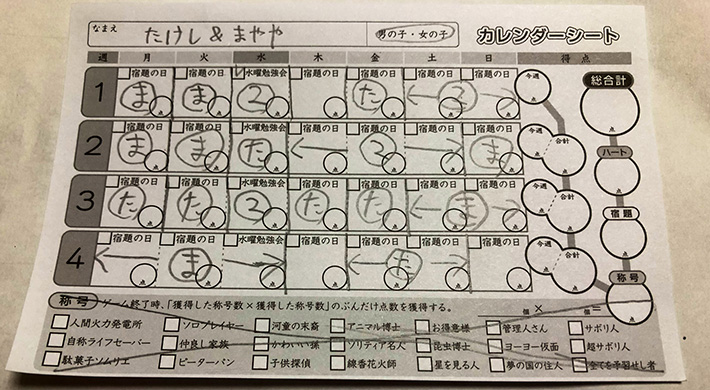 なまえ たけし & まやや 男の子・女の子 カレンダーシート
週 月 火 水 木 金 土 日 得点
1 宿題の日 宿題の日 水曜勉強会 宿題の日 宿題の日 宿題の日 宿題の日 今週 総合計
ま ま 2 た ← 2 →
点 点 点 点 点 点 点 点 点
2 宿題の日 宿題の日 水曜勉強会 宿題の日 宿題の日 宿題の日 宿題の日 今週 合計 ハート
ま ま た ← 2 → ま
点 点 点 点 点 点 点 点 点 点
3 宿題の日 宿題の日 水曜勉強会 宿題の日 宿題の日 宿題の日 宿題の日 今週 合計 宿題
た た 2 た た ← ま →
点 点 点 点 点 点 点 点 点 点
4 宿題の日 宿題の日 水曜勉強会 宿題の日 宿題の日 宿題の日 宿題の日 今週 合計 称号
← ま → ← た →
点 点 点 点 点 点 点 点 点
称号 ゲーム終了時、「獲得した称号数×獲得した称号数」のぶんだけ点数を獲得する。 個 × 個 =
人間火力発電所 ソロプレイヤー 河童の末裔 アニマル博士 お得意様 管理人さん サボリ人
自称ライフセーバー 仲良し家族 かわいい孫 ソリティア名人 昆虫博士 ヨーヨー仮面 超サボリ人
駄菓子ソムリエ ピーターパン 子供探偵 線香花火師 星を見る人 夢の国の住人 全てを予習せし者